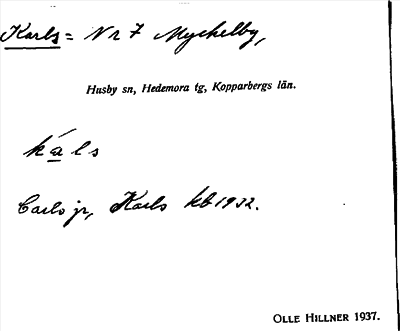 Karls = Nr 7 Myckelby,
Husby sn, Hedemora tg, Kopparbergs län.
káls
Carls jr, Karls kb 1932.
OLLE HILLNER 1937.